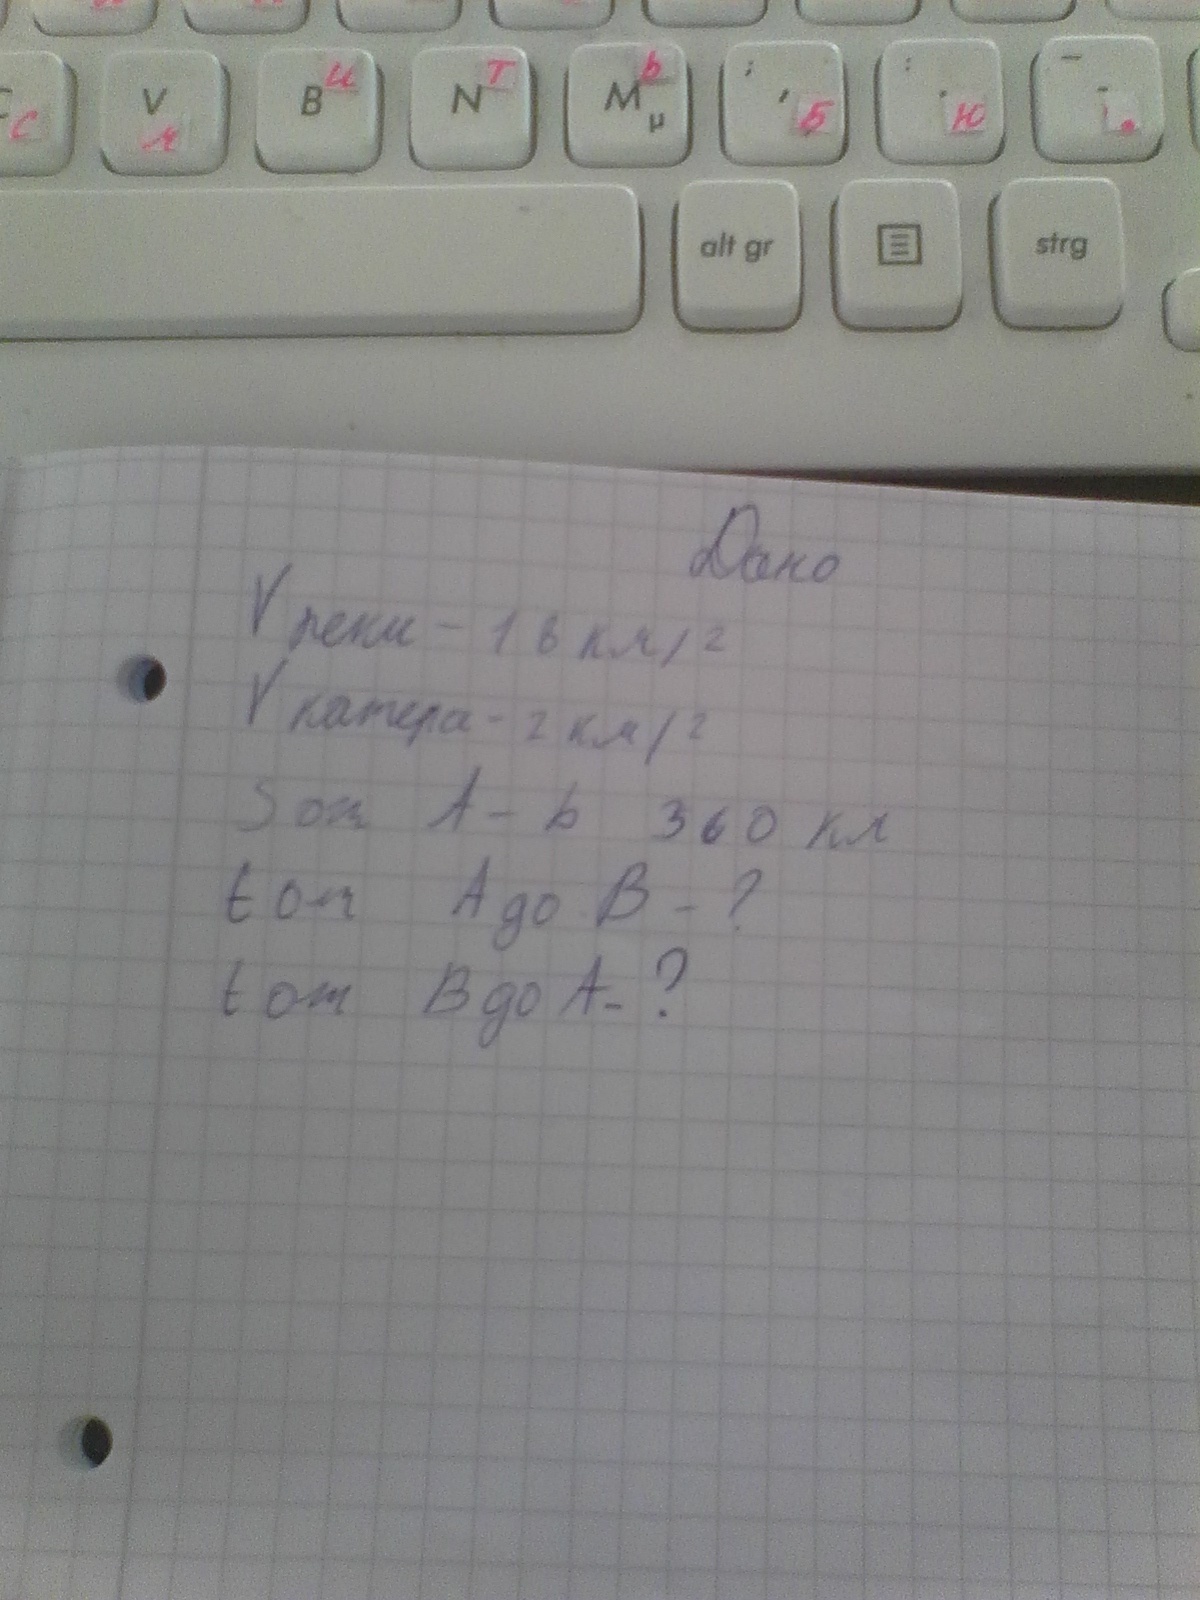 C с
V м
B и
N т
M ь µ
; , Б
: . Ю
_ - .
alt gr
strg
Дано
V реки - 18 км/г
V катера - 2 км/г
S от A - b 360 км
t от A до B - ?
t от B до A - ?